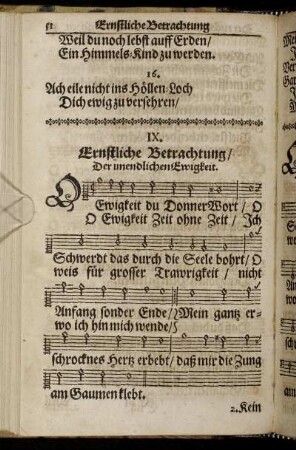 52 Ernstliche Betrachtung
Weil du noch lebst auff Erden/
Ein Himmels-Kind zu werden.
16.
Ach eile nicht ins Höllen-Loch
Dich ewig zu versehren/
IX.
Ernstliche Betrachtung/
Der unendlichen Ewigkeit.
O Ewigkeit du DonnerWort / O
O Ewigkeit Zeit ohne Zeit / Ich
Schwerdt das durch die Seele bohrt/ O
weis für grosser Trawrigkeit / nicht
Anfang sonder Ende/ Mein gantz er-
wo ich hin mich wende/
schrocknes Hertz erbebt/ daß mir die Zung
am Gaumen klebt.
2. Kein